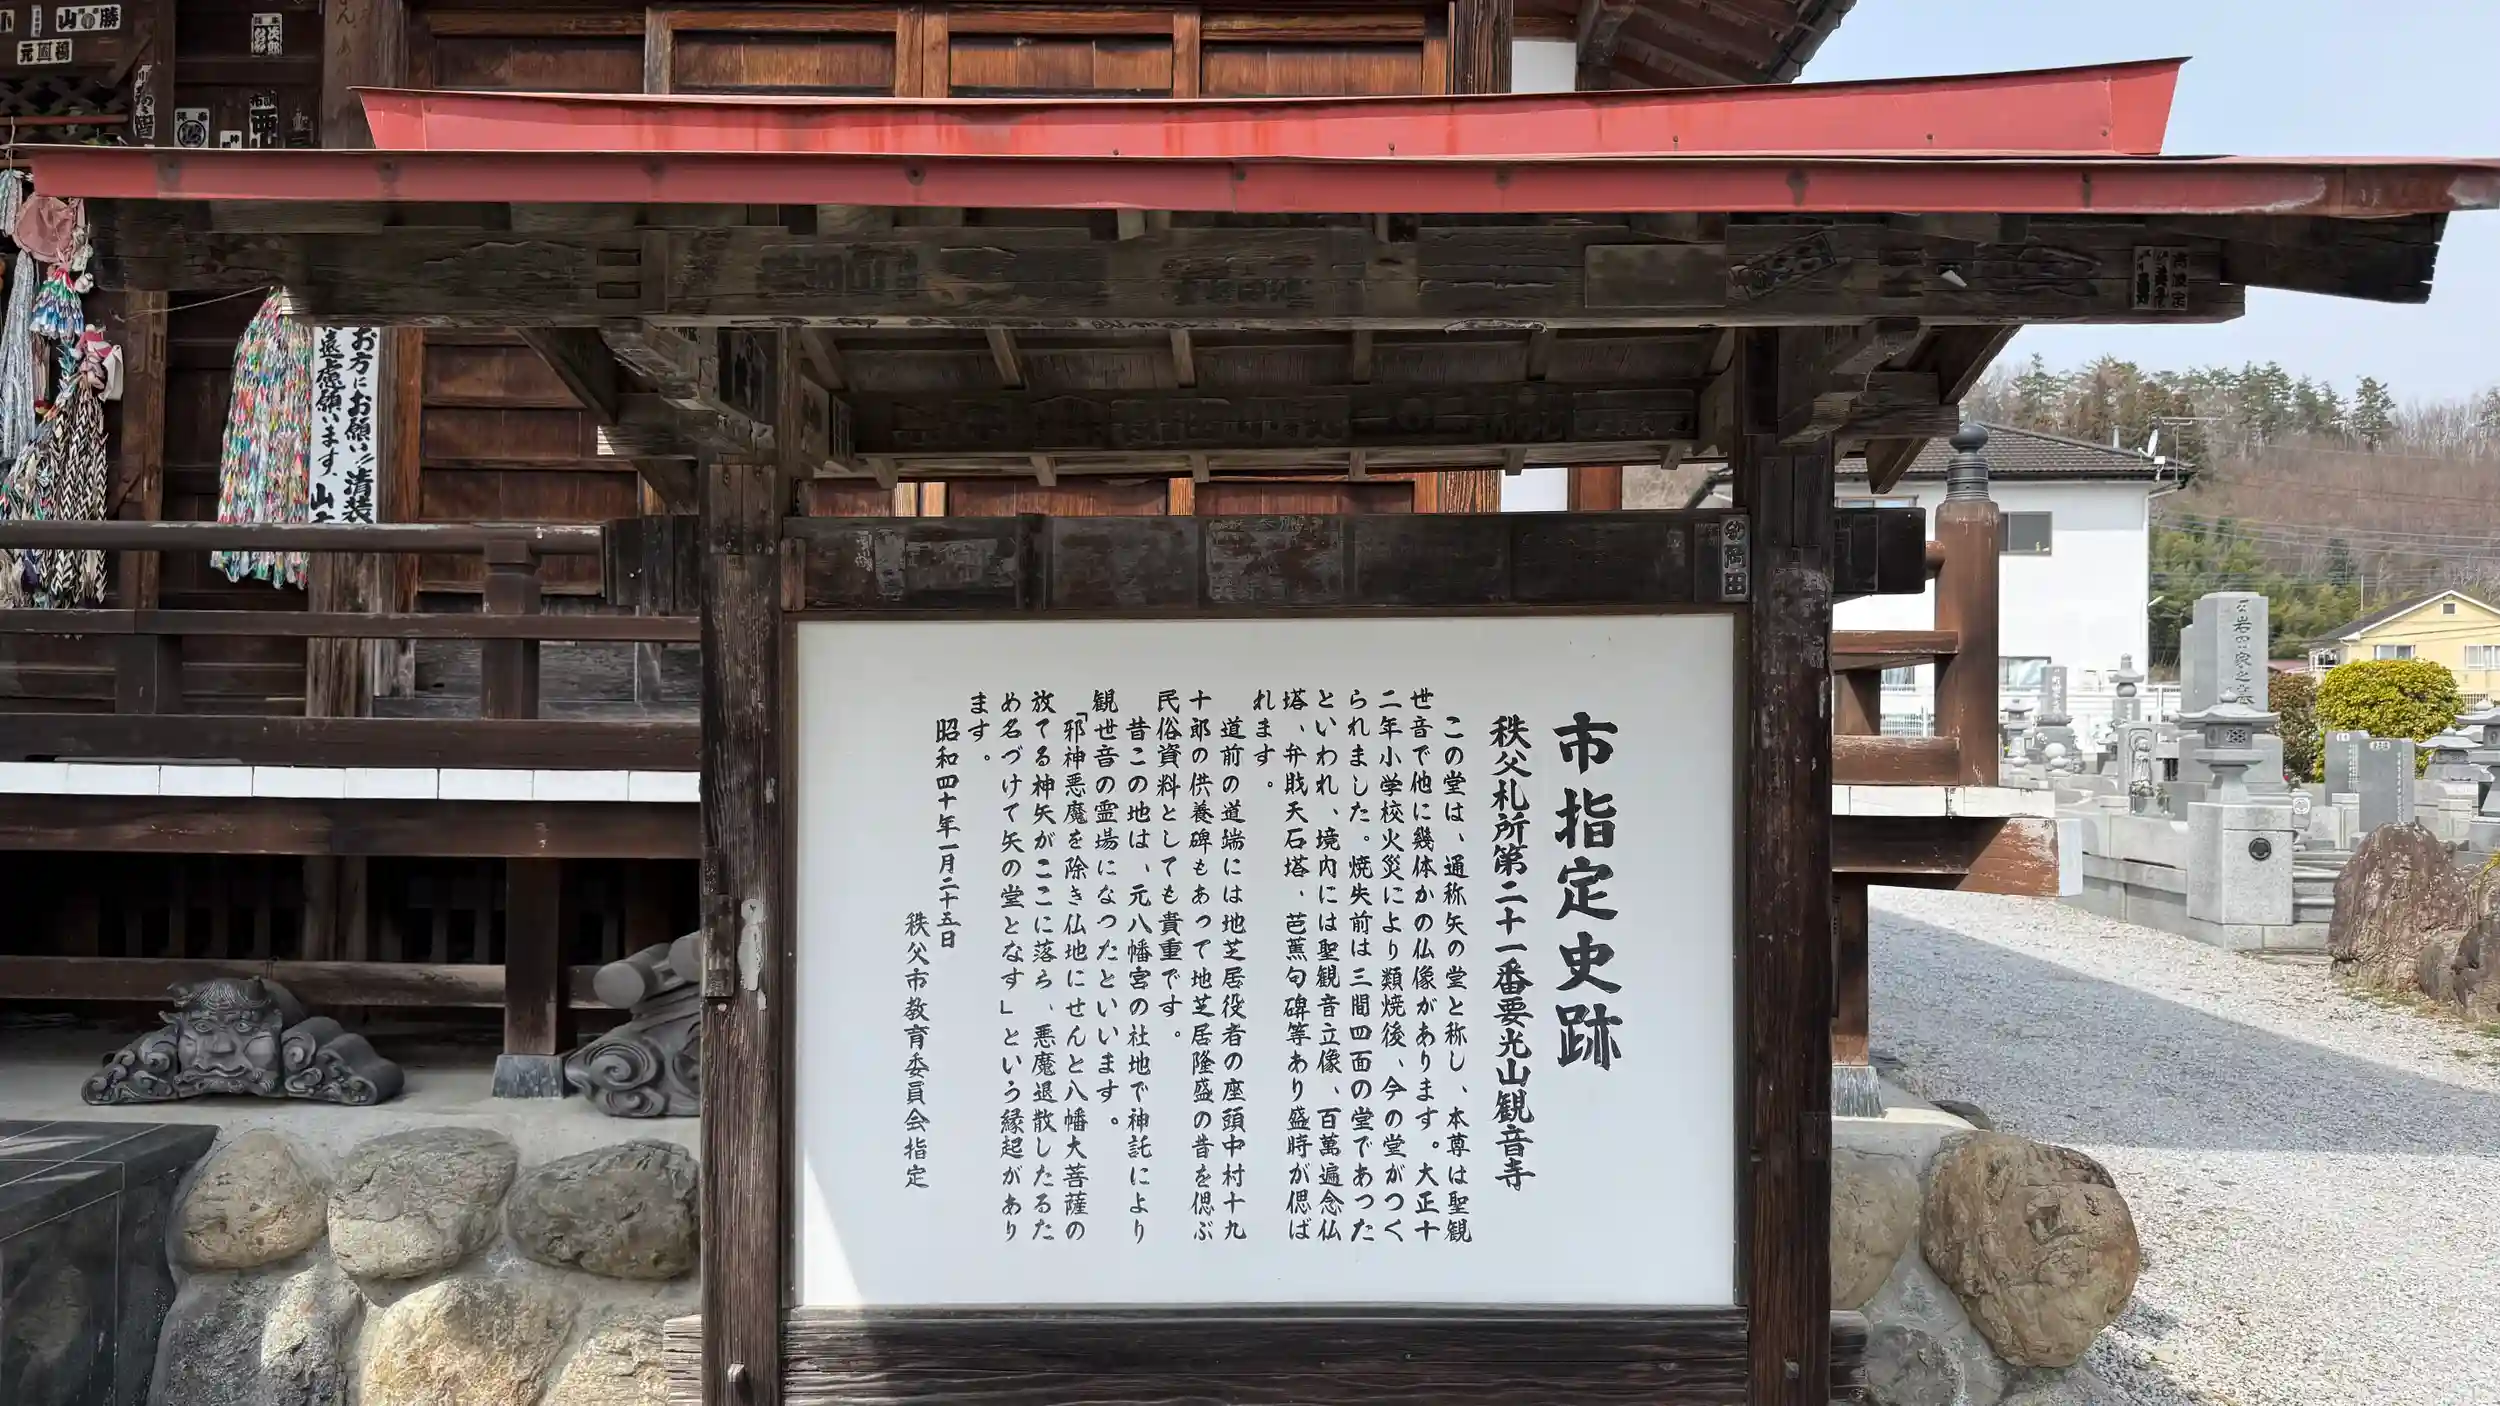 市指定史跡
秩父札所第二十一番要光山観音寺
この堂は、通称矢の堂と称し、本尊は聖観
世音で他に幾体かの仏像があります。大正十
二年小学校火災により類焼後、今の堂がつく
られました。焼失前は三間四面の堂であった
といわれ、境内には聖観音立像、百萬遍念仏
塔、弁財天石塔、芭蕉句碑等あり盛時が偲ば
れます。
道前の道端には地芝居役者の座頭中村十九
十郎の供養碑もあって地芝居隆盛の昔を偲ぶ
民俗資料としても貴重です。
昔この地は、元八幡宮の社地で神託により
観世音の霊場になったといいます。
「邪神悪魔を除き仏地にせんと八幡大菩薩の
放てる神矢がここに落ち、悪魔退散したるた
め名づけて矢の堂となす」という縁起があり
ます。
昭和四十年一月二十五日
秩父市教育委員会指定
お方にお願い
清装
遠慮願います。
山